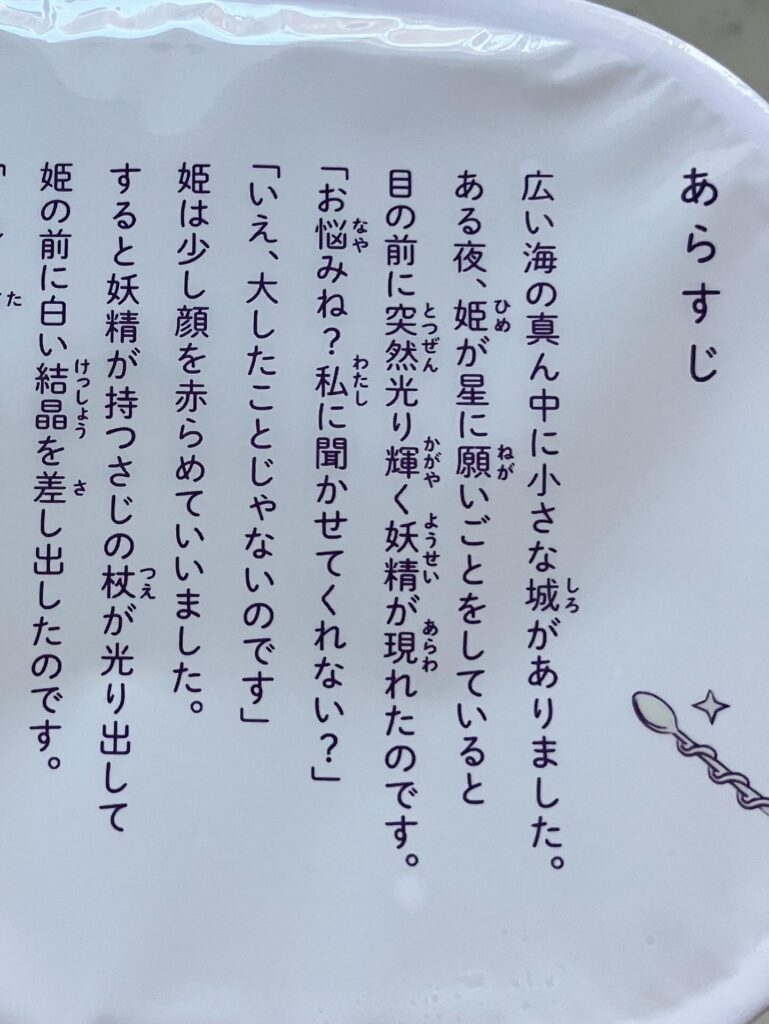 あらすじ
広い海の真ん中に小さな城がありました。
ある夜、姫が星に願いごとをしていると
目の前に突然光り輝く妖精が現れたのです。
「お悩みね？私に聞かせてくれない？」
「いえ、大したことじゃないのです」
姫は少し顔を赤らめていいました。
すると妖精が持つさじの杖が光り出して
姫の前に白い結晶を差し出したのです。